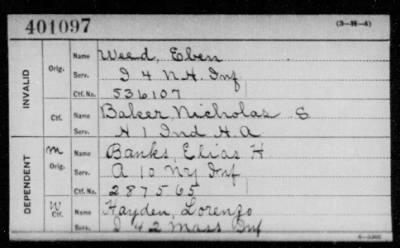 401097
(3-H-4)
INVALID
Orig.
Name Weed, Eben
Serv. I 4 N.H. Inf
Ctf. No. 536107
Ctf.
Name Baker, Nicholas S
Serv. H 1 Ind H A
DEPENDENT
M
Orig.
Name Banks, Elias H
Serv. A 10 NY Inf
Ctf. No. 287565
W
Ctf.
Name Hayden, Lorenzo
Serv. I 42 Mass Inf